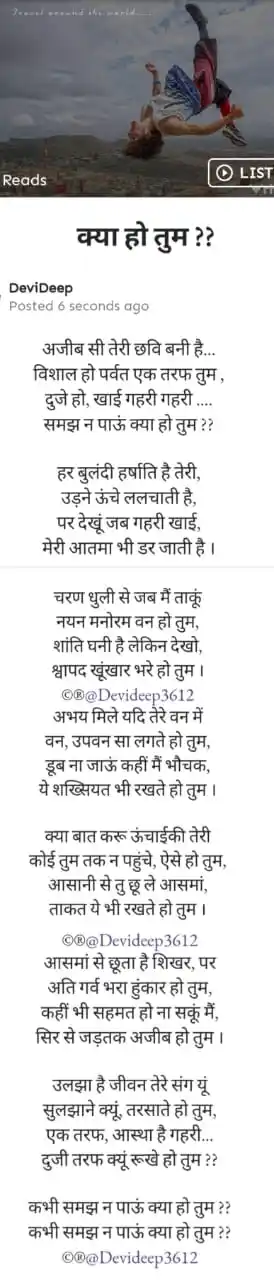 Travel around the world.....
Reads
LIST
क्या हो तुम ??
DeviDeep
Posted 6 seconds ago
अजीब सी तेरी छवि बनी है...
विशाल हो पर्वत एक तरफ तुम ,
दुजे हो, खाई गहरी गहरी ....
समझ न पाऊं क्या हो तुम ??
हर बुलंदी हर्षाति है तेरी,
उड़ने ऊंचे ललचाती है,
पर देखूं जब गहरी खाई,
मेरी आतमा भी डर जाती है ।
चरण धुली से जब मैं ताकूं
नयन मनोरम वन हो तुम,
शांति घनी है लेकिन देखो,
श्वापद खूंखार भरे हो तुम ।
©®@Devideep3612
अभय मिले यदि तेरे वन में
वन, उपवन सा लगते हो तुम,
डूब ना जाऊं कहीं मैं भौचक,
ये शख्सियत भी रखते हो तुम ।
क्या बात करू ऊंचाईकी तेरी
कोई तुम तक न पहुंचे, ऐसे हो तुम,
आसानी से तु छू ले आसमां,
ताकत ये भी रखते हो तुम ।
©®@Devideep3612
आसमां से छूता है शिखर, पर
अति गर्व भरा हुंकार हो तुम,
कहीं भी सहमत हो ना सकूं मैं,
सिर से जड़तक अजीब हो तुम ।
उलझा है जीवन तेरे संग यूं
सुलझाने क्यूं, तरसाते हो तुम,
एक तरफ, आस्था है गहरी...
दुजी तरफ क्यूं रूखे हो तुम ??
कभी समझ न पाऊं क्या हो तुम ??
कभी समझ न पाऊं क्या हो तुम ??
©®@Devideep3612